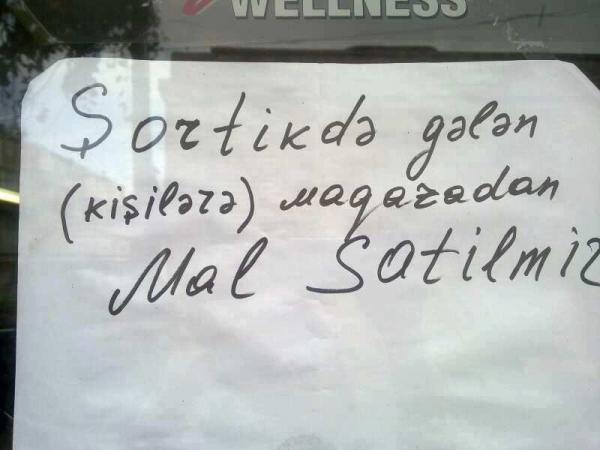 WELLNESS
Şortikdə gələn
(kişilərə) maqazadan
Mal satilmiz